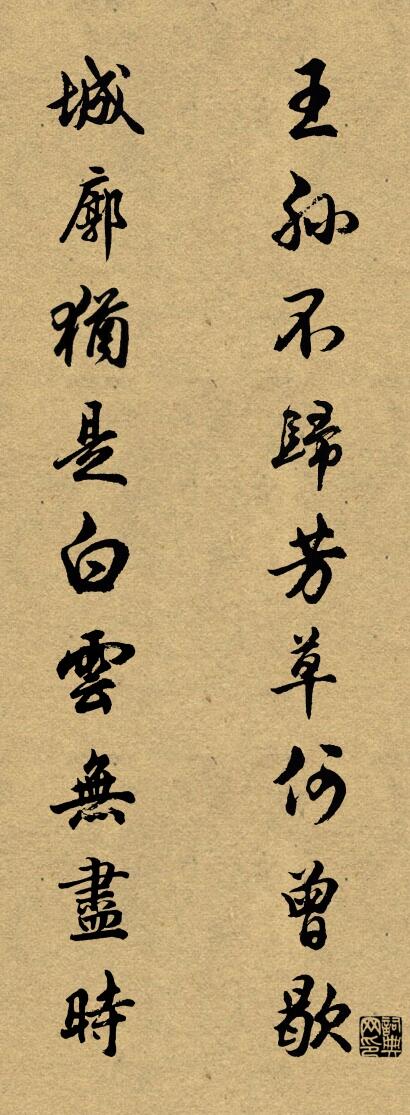 王孫不歸芳草何曾歇
城廓猶是白雲無盡時
詞典网印